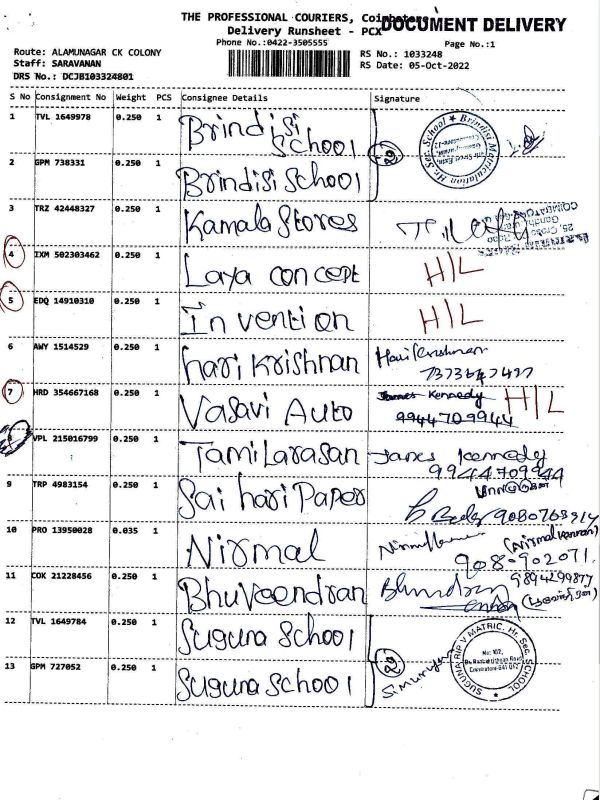 THE PROFESSIONAL COURIERS, Coimbatore
DOCUMENT DELIVERY
Delivery Runsheet - PCX
Phone No.:0422-3505555
Page No.:1
Route: ALAMUNAGAR CK COLONY
Staff: SARAVANAN
DRS No.: DCJB103324801
RS No.: 1033248
RS Date: 05-Oct-2022
S No Consignment No Weight PCS Consignee Details Signature
1 TVL 1649978 0.250 1 Brindisi School
2 GPM 738331 0.250 1 Brindisi School
3 TRZ 42448327 0.250 1 Kamala Stores
4 IXM 502303462 0.250 1 Laya concept H/L
5 EDQ 14910310 0.250 1 Invention H/L
6 AWY 1514529 0.250 1 hari krishnan Harikrishnan
7373647497
7 HRD 354667168 0.250 1 Vasavi Auto James Kennedy H/L
9944709944
8 VPL 215016799 0.250 1 Tamilarasan James Kennedy
9944709944
9 TRP 4983154 0.250 1 Sai hari Paper
10 PRO 13950028 0.035 1 Nirmal (Nirmal Kannan)
908-902071.
11 COK 21228456 0.250 1 Bhuveendran
9894299877
12 TVL 1649784 0.250 1 Suguna School
13 GPM 727052 0.250 1 Suguna School
SUGUNA RIP V MATRIC. Hr. Sec. SCHOOL